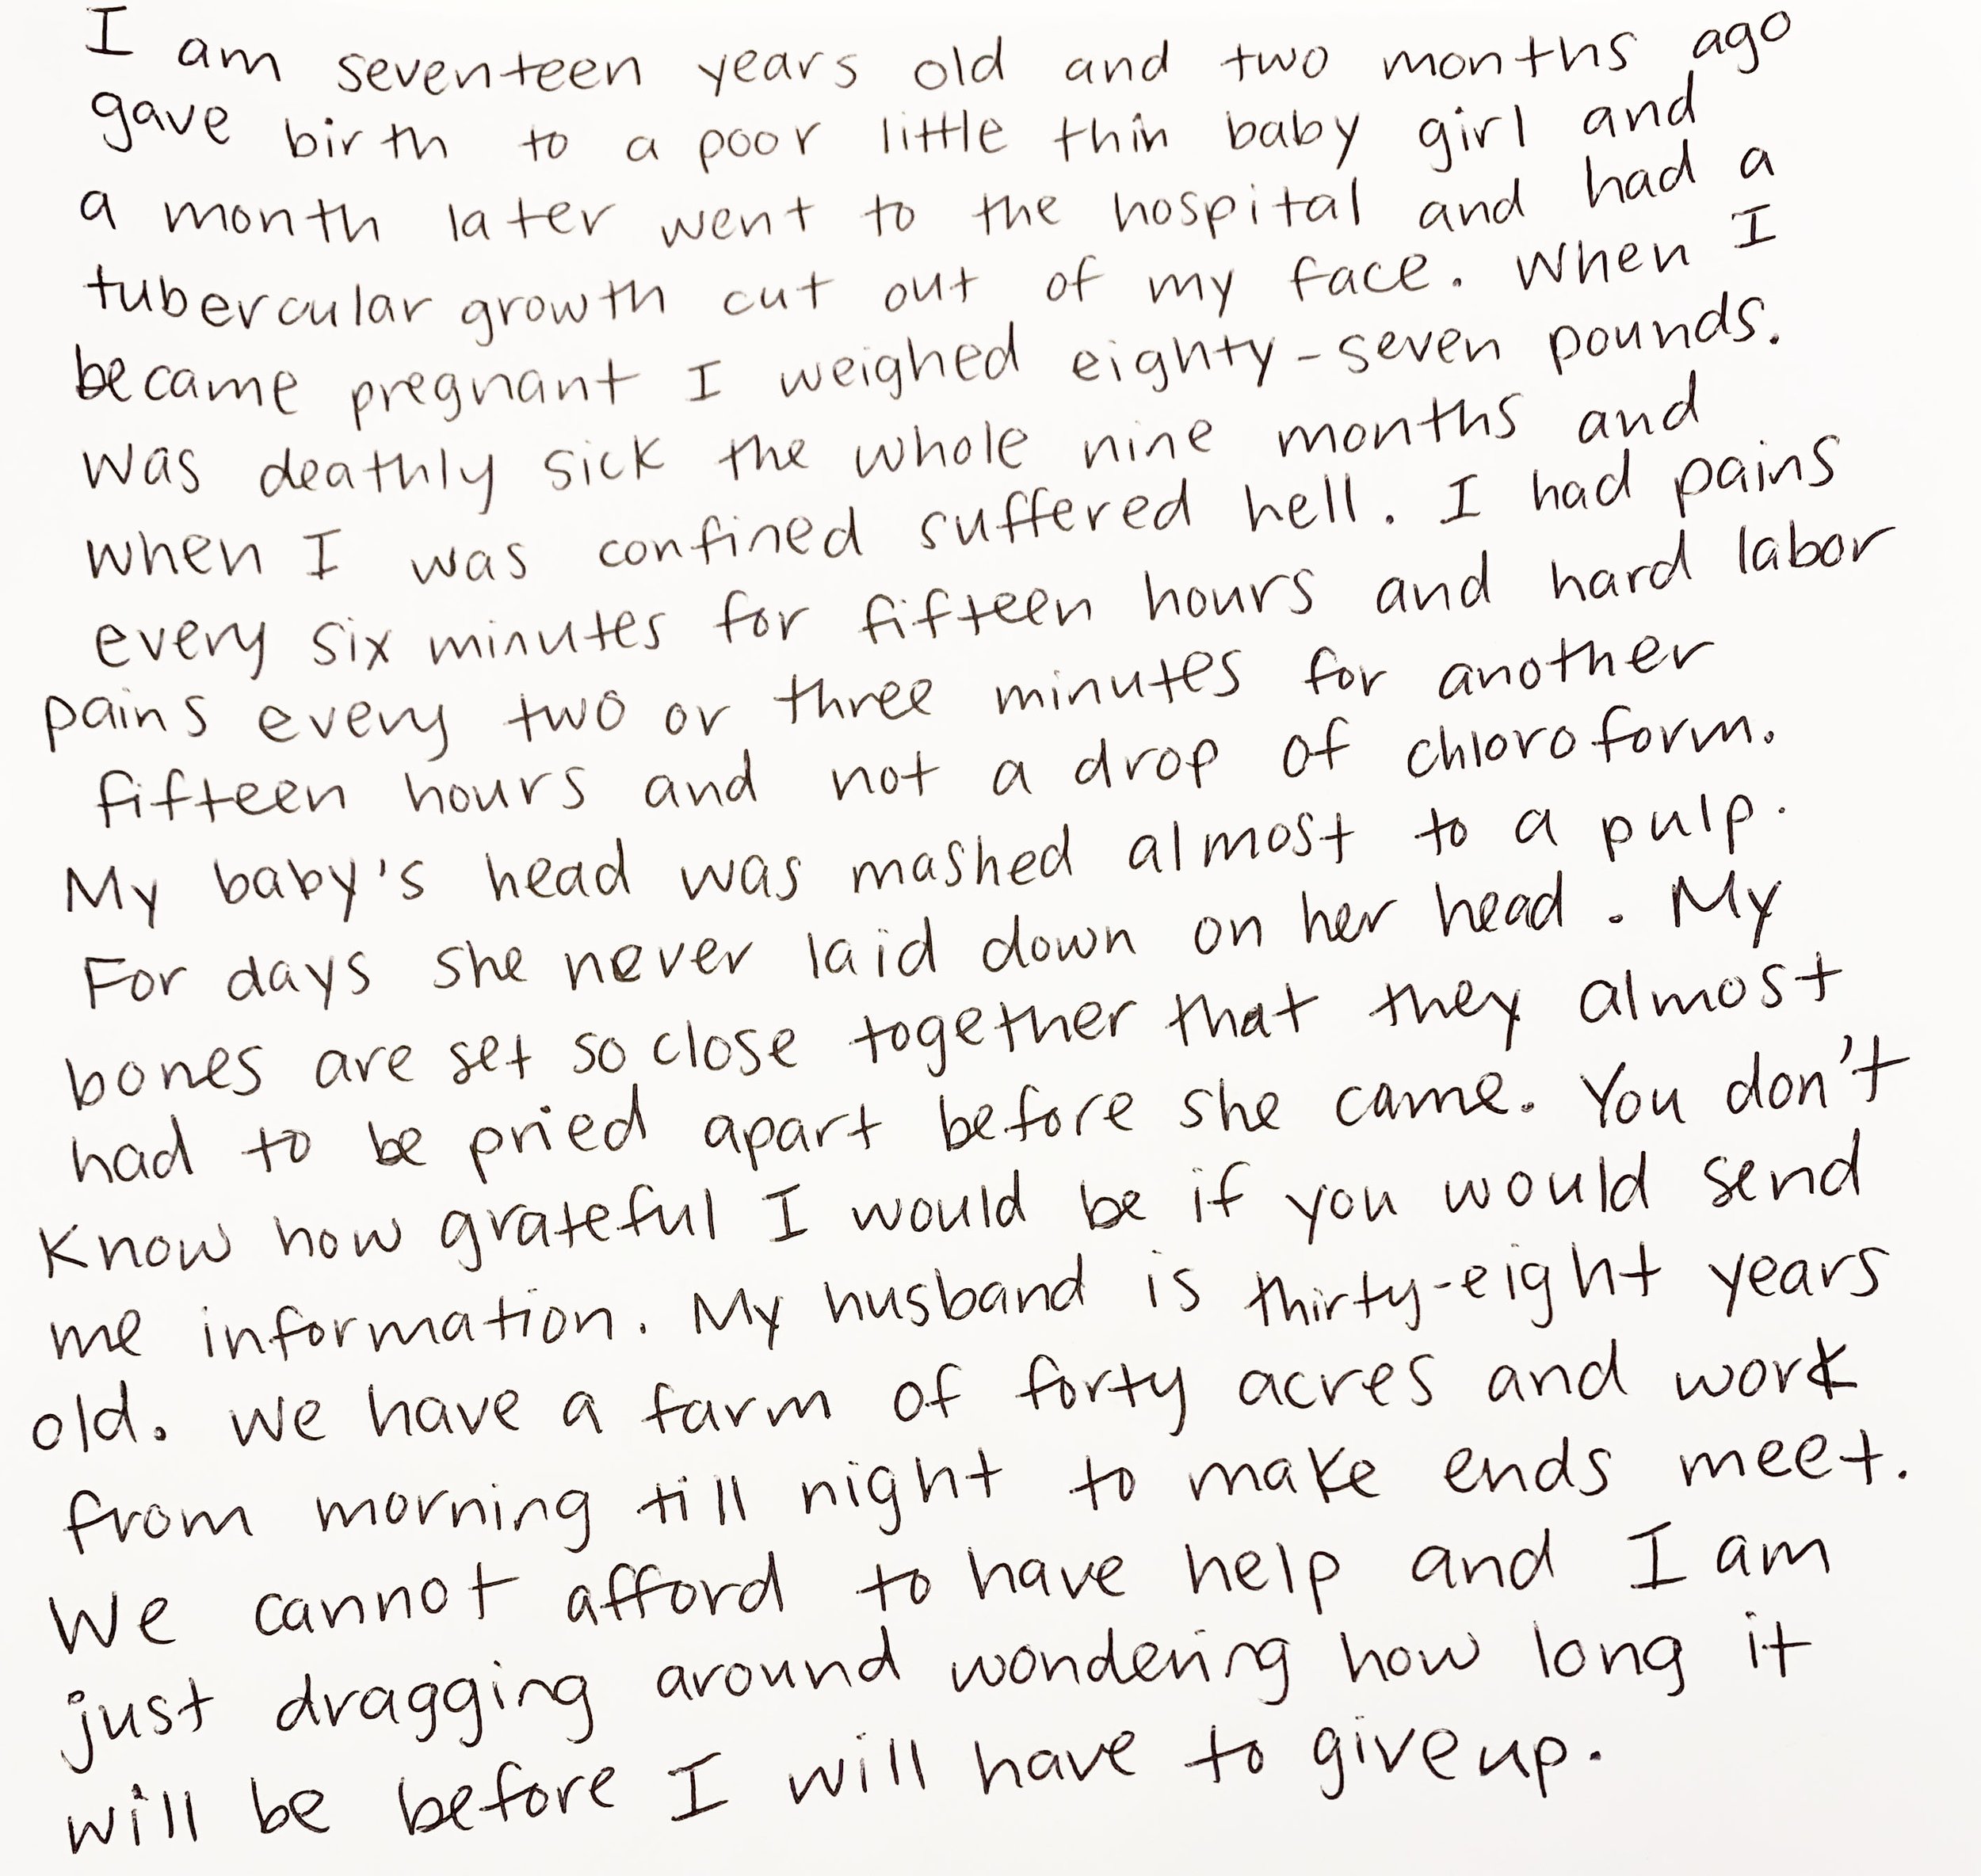 I am seventeen years old and two months ago
gave birth to a poor little thin baby girl and
a month later went to the hospital and had a
tubercular growth cut out of my face. When I
became pregnant I weighed eighty-seven pounds.
Was deathly sick the whole nine months and
when I was confined suffered hell. I had pains
every six minutes for fifteen hours and hard labor
pains every two or three minutes for another
fifteen hours and not a drop of chloroform.
My baby's head was mashed almost to a pulp.
For days she never laid down on her head. My
bones are set so close together that they almost
had to be pried apart before she came. You don't
know how grateful I would be if you would send
me information. My husband is thirty-eight years
old. We have a farm of forty acres and work
from morning till night to make ends meet.
We cannot afford to have help and I am
just dragging around wondering how long it
will be before I will have to give up.